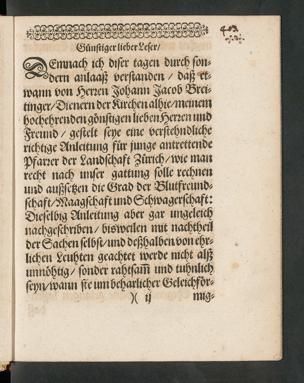 Günstiger lieber Leser/
DEmnach ich diser tagen durch son-
dern anlaaß verstanden / daß et-
wann von Herren Johann Jacob Brei-
tinger/Dienern der Kirchen alhie/meinem
hochehrenden günstigen lieben Herren und
Freund / gestelt seye eine verstendliche
richtige Anleitung für junge antrettende
Pfarrer der Landschaft Zürich/ wie man
recht nach unser gattung solle rechnen
und außsetzen die Grad der Blutfreund-
schaft/Maagschaft und Schwagerschaft:
Dieselbig Anleitung aber gar ungeleich
nachgeschriben/ bisweilen mit nachtheil
der Sachen selbst/ und deßhalben von ehr-
lichen Leuhten geachtet werde nicht alß
unnöhtig/ sonder rahtsam̃ und tuhnlich
seyn/wann sie um beharlicher Geleichför-
)( ij mig-